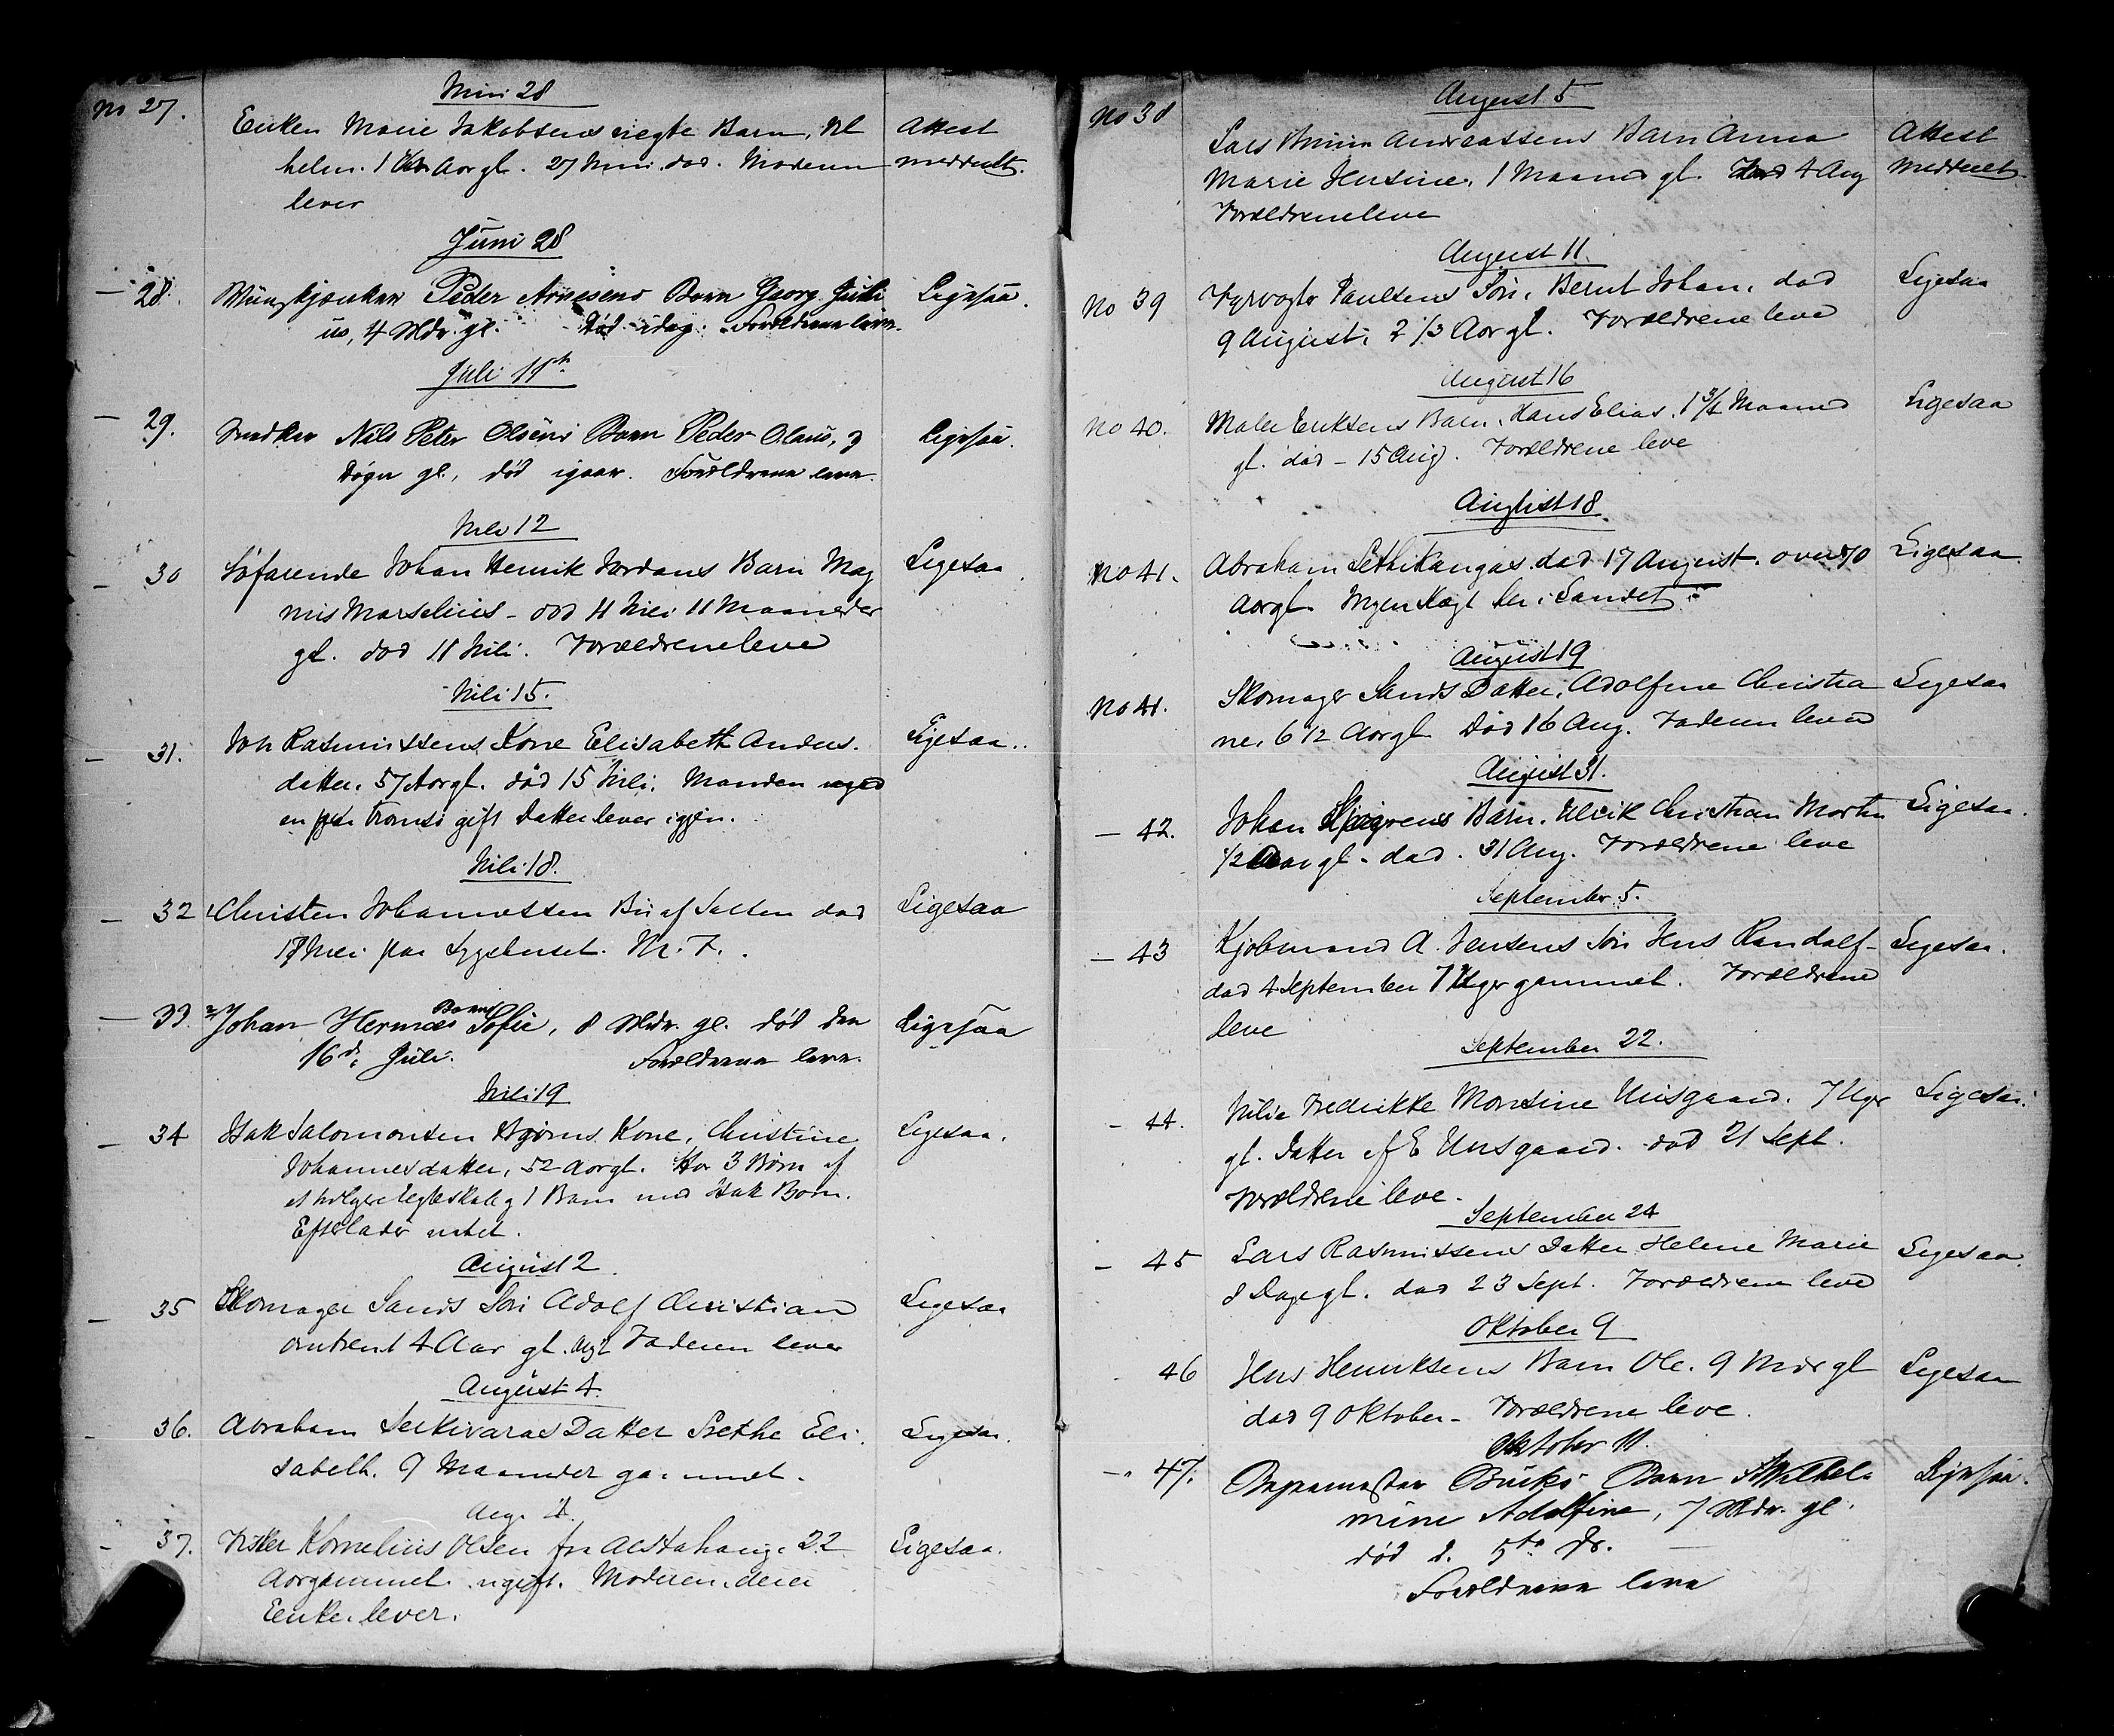 No 27.
Juni 28
Enken Marie Jakobsens uegte Barn, Vil
helm. 1 Aar gl. 27 Juni død. Moderen
lever
Attest
meddeelt.
Juni 28
— 28.
Peder Arnesens Barn Georg Juli
us, 4 Mdr. gl. Død idag. Forældrene leve.
Ligesaa.
Juli 11te
— 29.
Snedker Nils Peter Olsens Barn Peder Olaus, 3
Døgn gl., død igaar. Forældrene leve.
Ligesaa.
Juli 12
— 30
Søfarende Johan Henrik Jordans Barn Mag
nus Marselius - død 11 Juli 11 Maaneder
gl. død 11 Juli. Forældrene leve
Ligesaa.
Juli 15.
— 31.
Joh Rasmussens Kone Elisabeth Anders.
datter. 57 Aar gl. død 15 Juli. Manden og
en paa Tromsø gift Datter lever igjen.
Ligesaa..
Juli 18.
— 32
Christen Johannessen Bu af Salten død
17 Juli paa Sygehuset. M. F.
Ligesaa
— 33.
Johan Hermæs Barn Sofie, 8 Mdr. gl. død den
16de Juli. Forældrene leve.
Ligesaa
Juli 19
— 34
Isak Salomonsen Bjørns Kone, Christine
Johannesdatter, 52 Aar gl. Har 3 Børn af
et tidligere Ægteskab og 1 Barn med Isak Børn.
Efterlader intet.
Ligesaa.
August 2.
— 35
Skomager Sands Søn Adolf Christian
omtrent 4 Aar gl. Faderen lever
Ligesaa
August 4.
- 36.
Abraham Serkivaras Datter Grethe Eli.
sabeth. 9 Maaneder gammel.
Ligesaa.
Aug. 4.
- 37.
Fisker Kornelius Olsen fra Alstahaug. 22
Aar gammel. ugift. Moderen, der er
Enke. lever.
Ligesaa.
No 38
August 5
Lars Andreassens Barn Anna
Marie Jensine. 1 Maaned gl. død 4 Aug
Forældrene leve
Attest
meddeelt.
August 11.
No 39
Fyrvogter Paulsens Søn, Bernt Johan, død
9 August. 2 1/3 Aar gl. Forældrene leve
Ligesaa
August 16
No 40.
Maler Eriksens Barn, Hans Elias. 1 3/4 Maaned
gl. død - 15 Aug. Forældrene leve
Ligesaa
August 18.
No 41.
Abraham Lethikangas død 17 August. over 70
Aar gl. Ingen Slægt her i Landet.
Ligesaa.
August 19
No 41.
Skomager Sands Datter, Adolfine Christia
ne. 6 1/2 Aar gl. Død 16 Aug. Faderen lever
Ligesaa
August 31.
— 42.
Johan Barn. Ulrik Christian Martin
1/2 Aar gl. død. 31 Aug. Forældrene leve
Ligesaa.
September 5.
— 43
Kjøbmand A. Jensens Søn Jens Randolf -
død 4 September 7 Uger gammel. Forældrene
leve
Ligesaa.
September 22.
- 44.
Julie Fredrikke Monsine Unsgaard. 7 Uger
gl. Datter af E Unsgaard. død 21 Sept.
Forældrene leve.
Ligesaa.
September 24
- 45
Lars Rasmussens Datter Helene Marie
8 Dage gl. død 23 Sept. Forældrene leve
Ligesaa.
Oktober 9
46
Jens Henriksens Barn Ole. 9 Mdr gl
død 9 Oktober - Forældrene leve.
Ligesaa
Oktober 11.
-. 47.
Bucks Barn Wilhel-
mine Adolfine, 7 Mdr. gl.
død d. 5te ds.
Forældrene leve
Ligesaa.